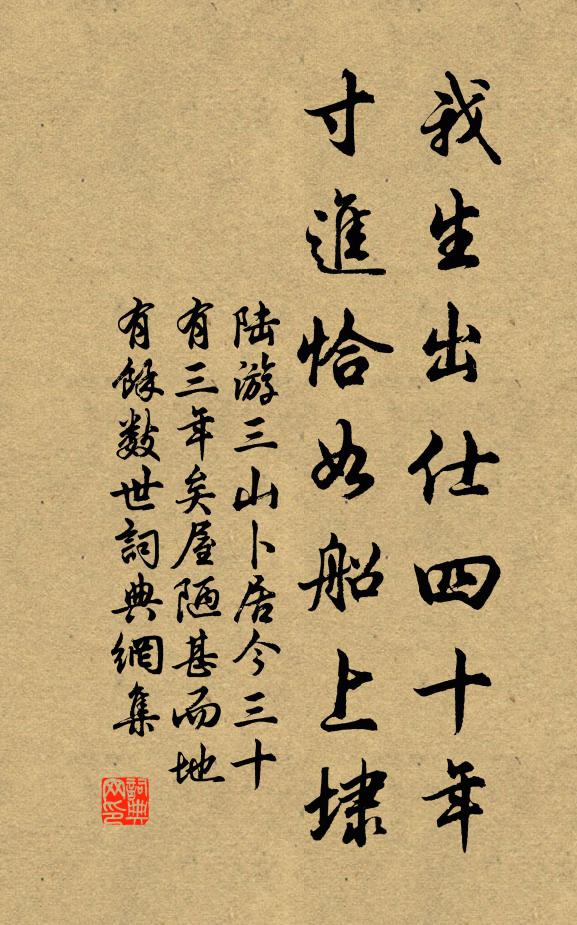 我生出仕四十年
寸進恰如船上埭
陆游三山卜居今三十
有三年矣屋陋甚而地
有餘数世詞典網集
詞典
网印